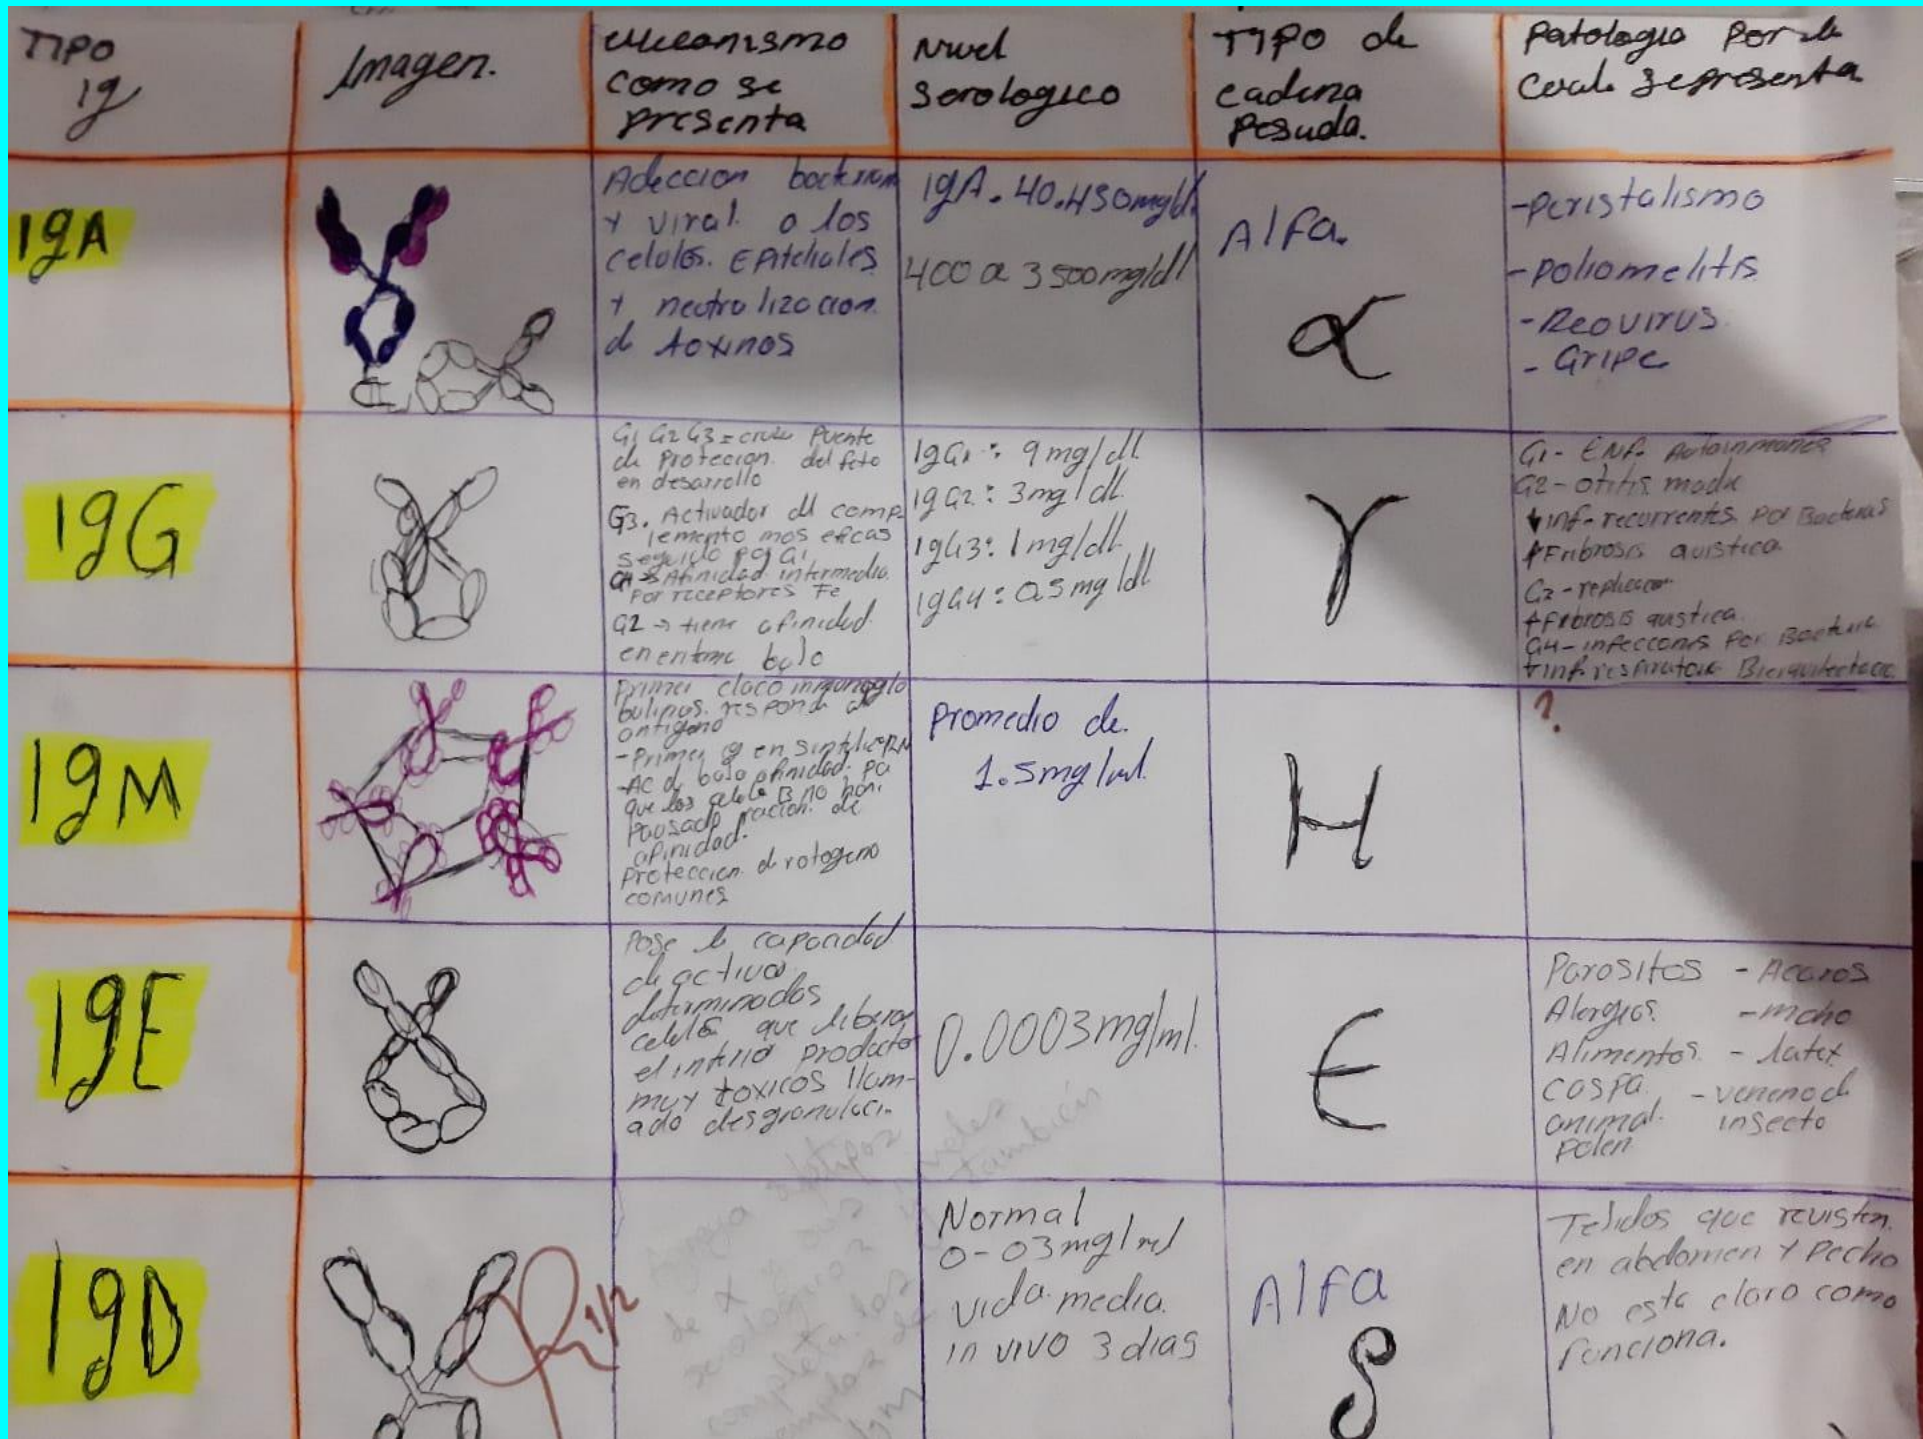 TIPO
Ig
Imagen.
Mecanismo
como se
presenta
Nivel
Serologico
TIPO de
cadena
Pesada.
Patologia Por la
Cual se presenta
IgA
Adeccion bacteriana
y viral a los
celulos. EPiteliales
+ neutralizacion
de toxinos
IgA. 40.450mg/dl
400 a 3500mg/dl
Alfa.
α
-peristalismo
-poliomelitis
-Reovirus
- Gripe
IgG
G1 G2 G3 = cruza Puente
de Proteccion. del feto
en desarrollo
G3. Activador del comp
lemento mos eficas
seguido por G1
G4 → Afinidad intermedia
Por receptores Fe
G2 → tiene afinidad
bajo
IgG1: 9mg/dl
IgG2: 3mg/dl.
IgG3: 1mg/dl.
IgG4: 0.5mg/dl
γ
G1- ENF. Autoinmunes
G2- otitis media
↓inf. recurrentes Por Bacterias
↑Fribrosis quistica
↑Fibrosis quistica.
G4- infecciones Por Bacteria
↓inf. respiratoria
IgM
Primer inmunoglo
bulinas. responde al
antigeno
-Primer Ig en
-AC d bajo afinidad. Por
que los celula B no han
Pausado de
afinidad.
Proteccion d
comunes
Promedio de.
1.5mg/ml.
H
?
IgE
Pose la capacidad
de activar
determinados
celulas que liberan
el interio producto
muy toxicos llam-
ado desgranulaci.
0.0003mg/ml.
E
Parositos - Acaros
Alergias. - moho
Alimentos. - latex
caspa. - veneno d
animal. insecto
Polen
IgD
1/2
subtipos
de x y sus niveles
serologicos también
completa los
Normal
0-03mg/ml
vida media.
in vivo 3 dias
Alfa
δ
Tejidos que revisten.
en abdomen y Pecho
No esta claro como
Funciona.